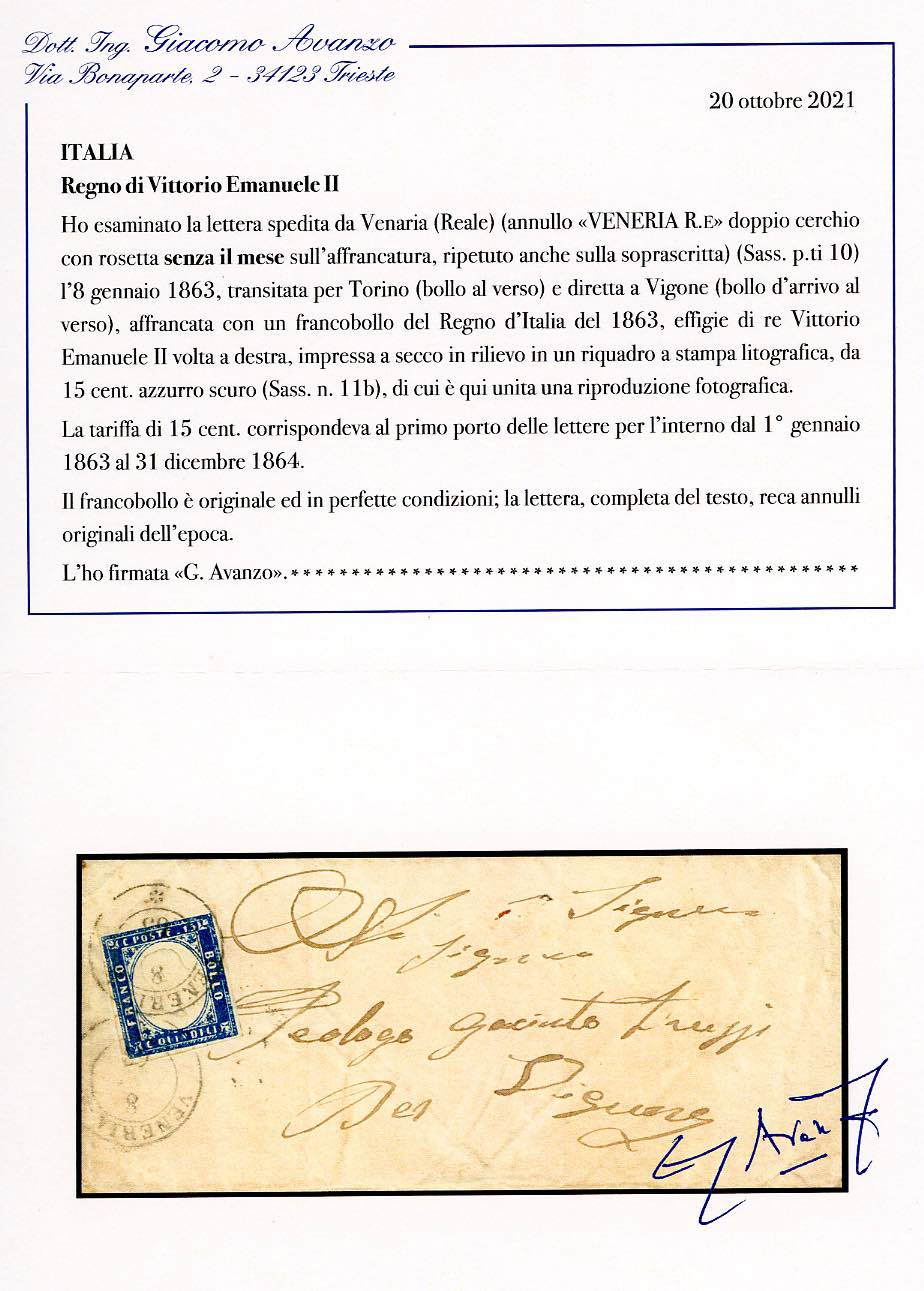 Dott. Ing. Giacomo Avanzo
Via Bonaparte, 2 – 34123 Trieste
20 ottobre 2021
ITALIA
Regno di Vittorio Emanuele II
Ho esaminato la lettera spedita da Venaria (Reale) (annullo «VENERIA R.E» doppio cerchio
con rosetta senza il mese sull'affrancatura, ripetuto anche sulla soprascritta) (Sass. p.ti 10)
l'8 gennaio 1863, transitata per Torino (bollo al verso) e diretta a Vigone (bollo d'arrivo al
verso), affrancata con un francobollo del Regno d'Italia del 1863, effigie di re Vittorio
Emanuele II volta a destra, impressa a secco in rilievo in un riquadro a stampa litografica, da
15 cent. azzurro scuro (Sass. n. 11b), di cui è qui unita una riproduzione fotografica.
La tariffa di 15 cent. corrispondeva al primo porto delle lettere per l'interno dal 1° gennaio
1863 al 31 dicembre 1864.
Il francobollo è originale ed in perfette condizioni; la lettera, completa del testo, reca annulli
originali dell'epoca.
L'ho firmata «G. Avanzo». * * * * * * * * * * * * * * * * * * * * * * * * * * * * * * * * * * * * * * * * * * * * * * *
C POSTE 15
FRANCO
BOLLO
C QUINDICI
8
VENERI
8
VENERIA
Signore
Teologo Gacinto